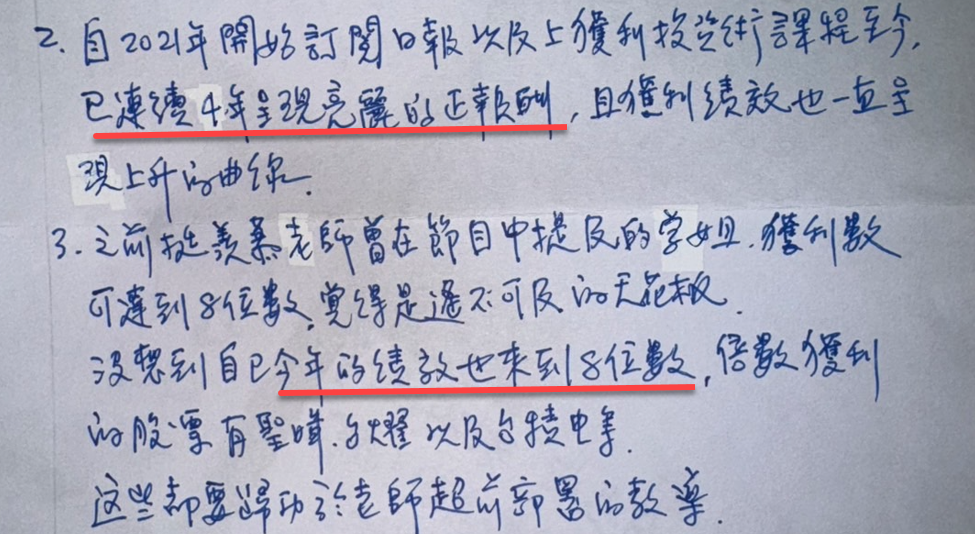 2. 自2021年開始訂閱日報以及上獲利投資術課程至今,
已連續4年呈現亮麗的正報酬,且獲利績效也一直呈
現上升的曲線.
3. 之前挺羨慕老師曾在節目中提及的学姐.獲利數
可達到8位數,覺得是遙不可及的天花板.
沒想到自已今年的績效也來到8位數,倍數獲利
的股票有聖暉.台燿以及台積电等.
这些都要歸功於老師超前部署的教導.